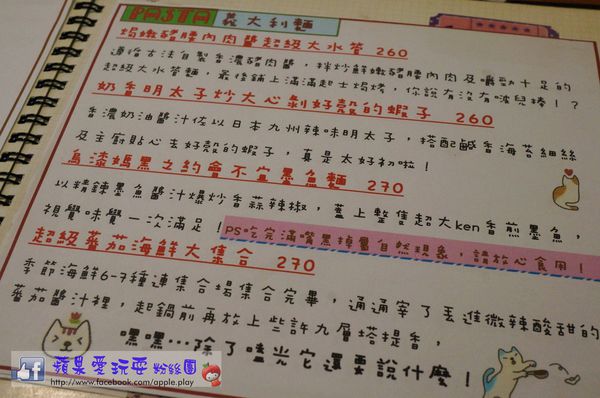 PASTA 義大利麵
焗嫩豬腰內肉醬超級大水管 260
遵循古法自製香濃豬肉醬，拌炒鮮嫩豬腰內肉及嚼勁十足的
超級大水管麵，最後鋪上滿滿起士焗烤，你說有沒有啵兒棒！？
奶香明太子炒大心剝好殼的蝦子 260
香濃奶油醬汁佐以日本九州辣味明太子，搭配鹹香海苔細絲
及主廚貼心去好殼的蝦子，真是太好初啦！
烏漆媽黑之約會不宜墨魚麵 270
以精鍊墨魚醬汁爆炒香蒜辣椒，蓋上整隻超大ken香煎墨魚，
視覺味覺一次滿足！ps吃完滿嘴黑掉屬自然現象，請放心食用！
超級蕃茄海鮮大集合 270
季節海鮮6-7種連集合場集合完畢，通通宰了丟進微辣酸甜的
蕃茄醬汁裡，起鍋前再放上些許九層塔提香，
嘿嘿…除了嗑光它還要說什麼！
蘋果愛玩耍 粉絲團
http://www.facebook.com/apple.play